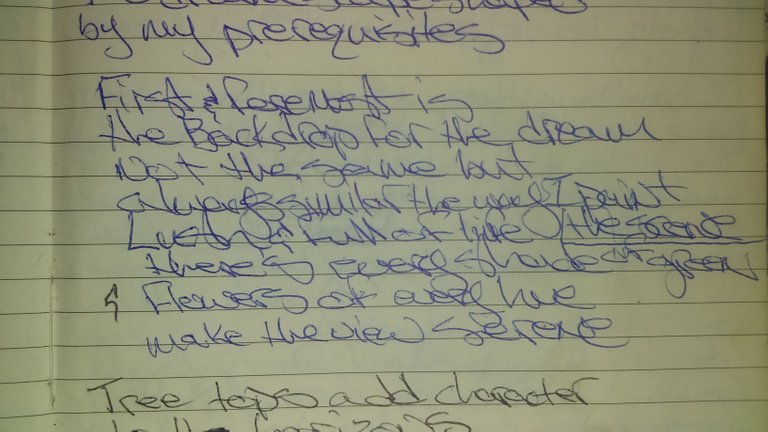 by my prerequisites
First & foremost is
the Backdrop for the dream
Not the same but
always similar the way I paint
Lush & full of life the scene
there's every shade of green
& Flowers of every hue
make the view serene
Tree tops add character
to the horizons